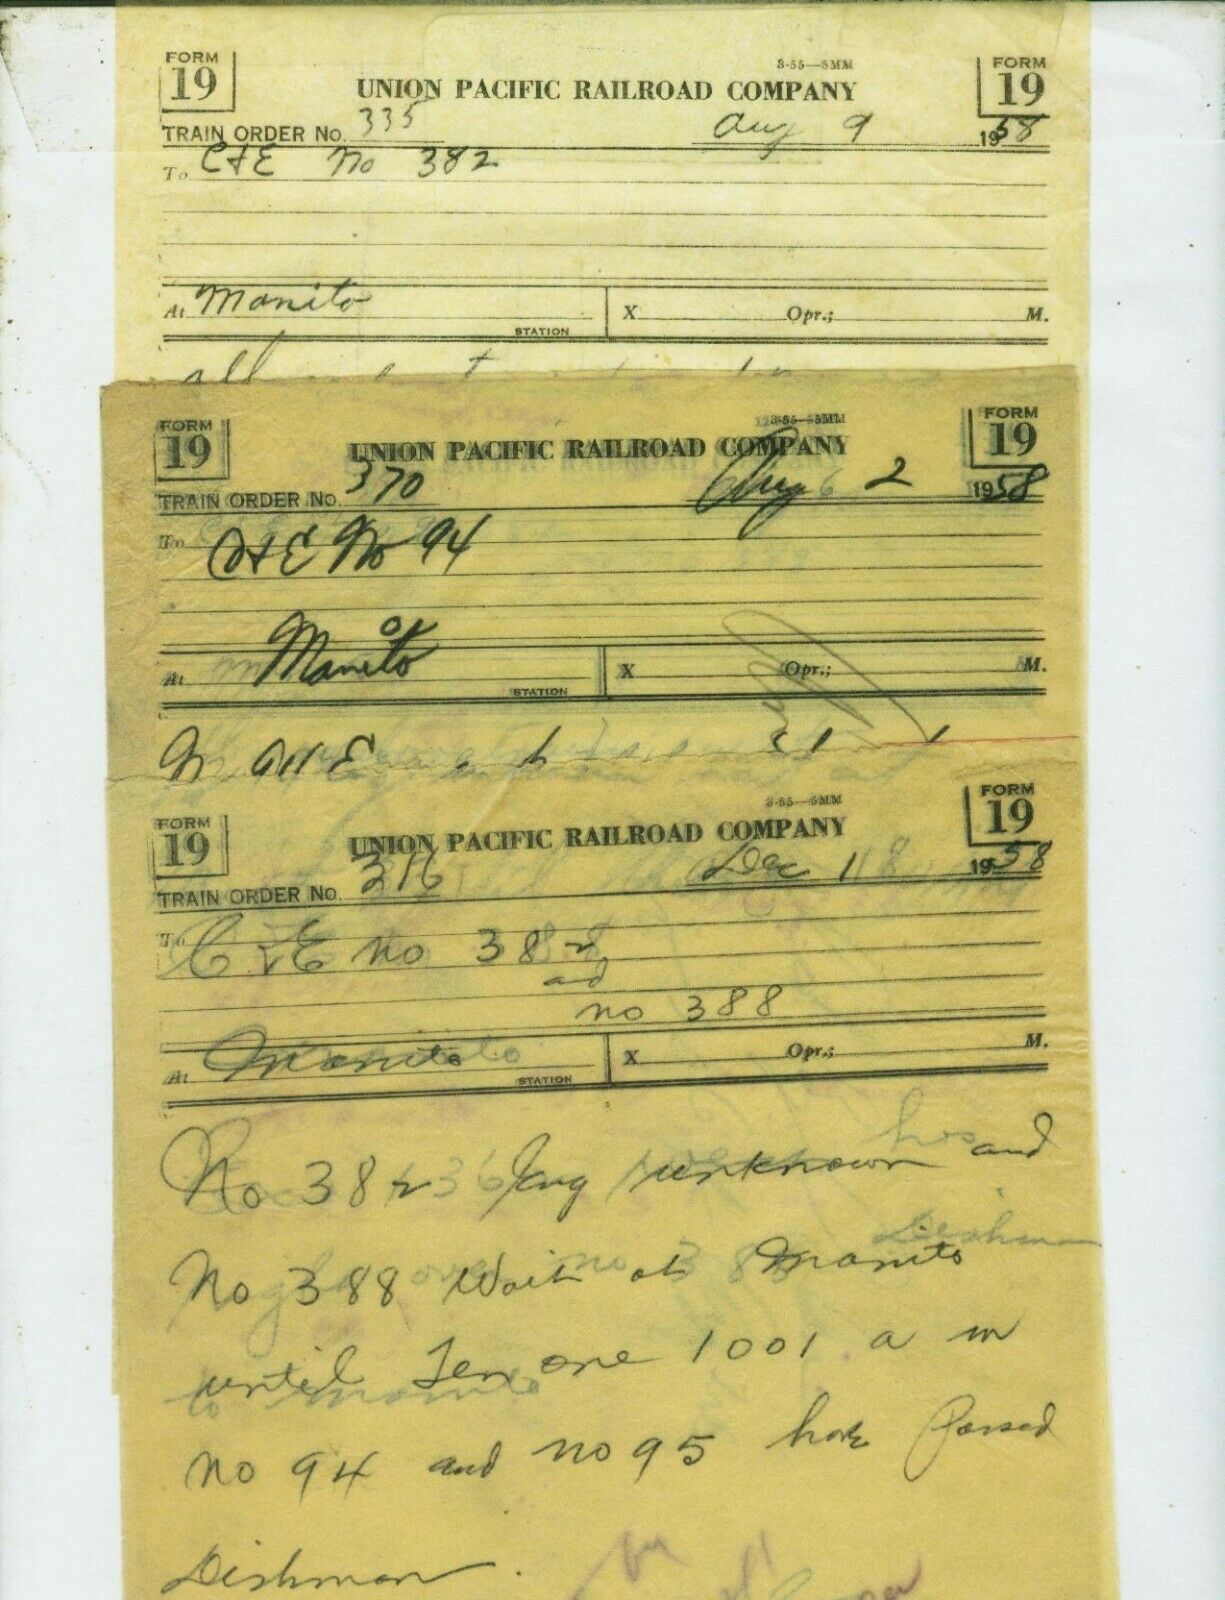 FORM 19
3-55—5MM
FORM 19
UNION PACIFIC RAILROAD COMPANY
TRAIN ORDER NO. 335 Aug 9 1958
To C&E No 382
At Manito STATION X Opr.; M.
FORM 19
3-55—5MM
FORM 19
UNION PACIFIC RAILROAD COMPANY
TRAIN ORDER NO. 370 Aug 2 1958
To C&E No 94
At Manito STATION X Opr.; M.
FORM 19
3-55—5MM
FORM 19
UNION PACIFIC RAILROAD COMPANY
TRAIN ORDER NO. 316 Dec 11 1958
To C&E no 382
and
no 388
At Manito STATION X Opr.; M.
No 382 Eng unknown and
No 388 Wait at Manito
until Ten one 1001 a m
no 94 and no 95 have Passed
Dishman